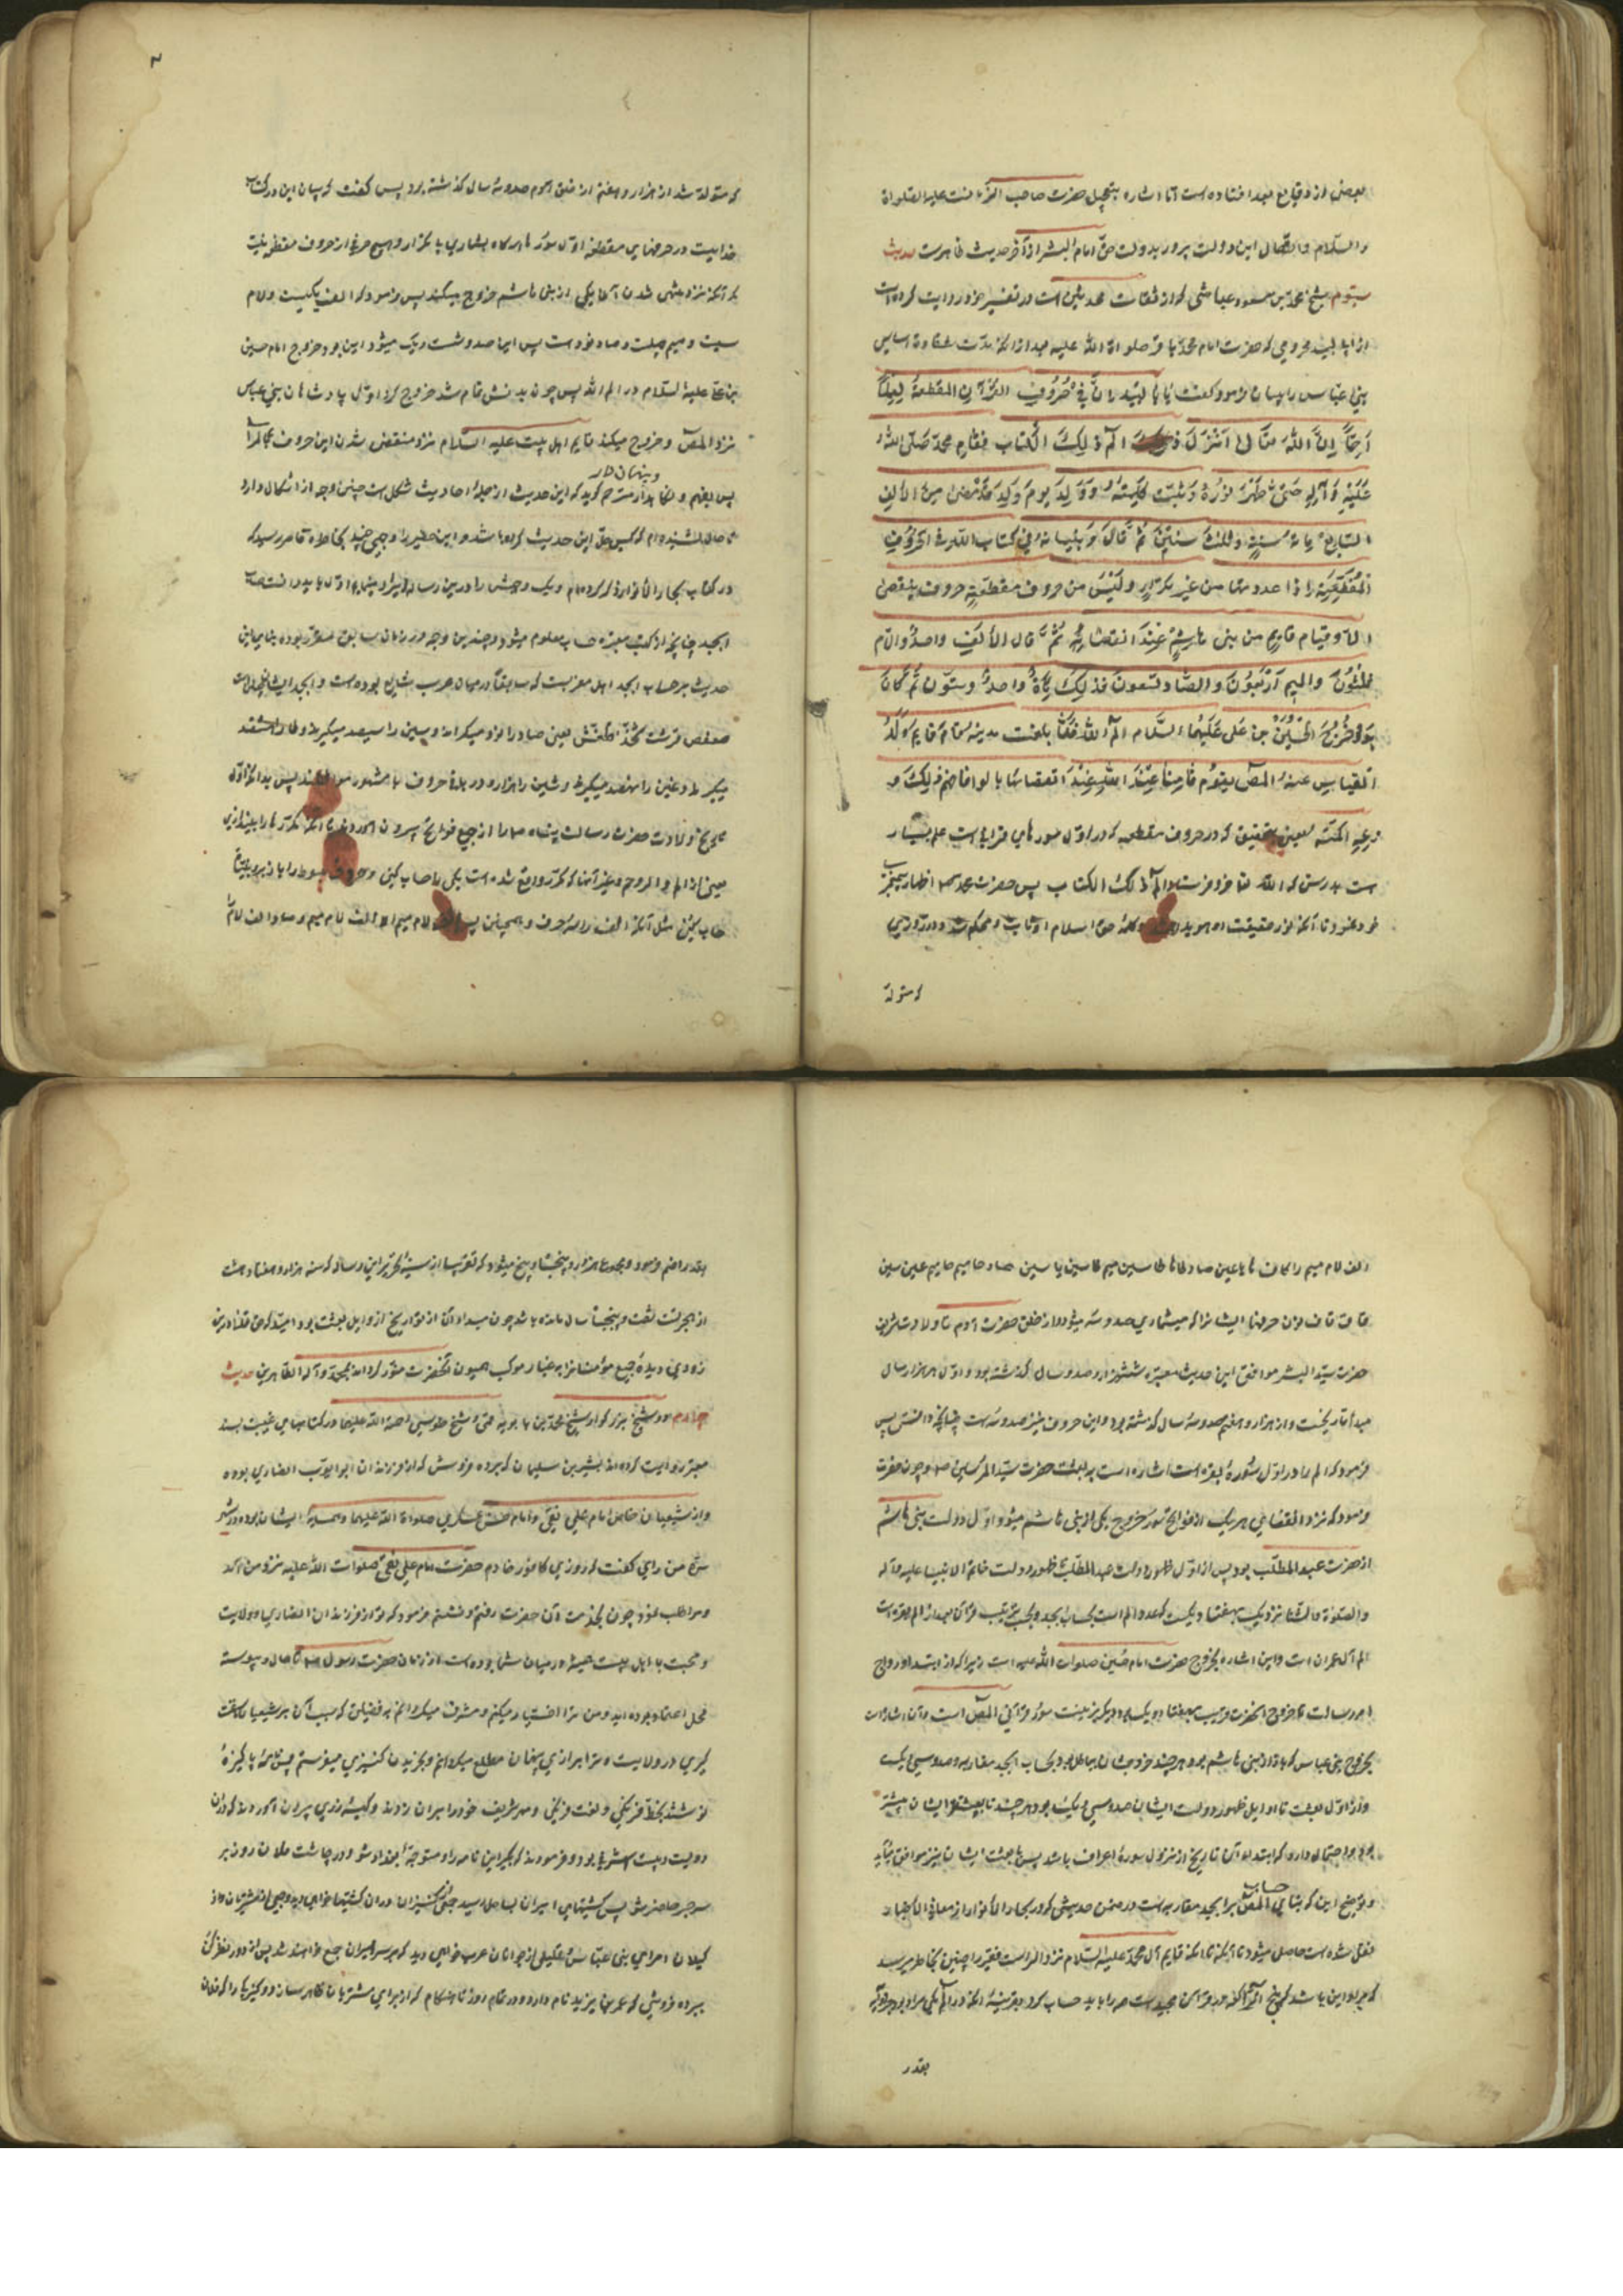 بعضی از وقایع بعد افتاده است اما اشاره بتعجیل حضرت صاحب
والسلام و اتصال این دولت بدولت حق امام البشر از آخر حدیث ظاهرست حدیث
سیّوم شیخ محمد بن مسعود عیاشی که از ثقات محدثین است در تفسیر خود روایت کرده است
از ابو لبید مخزومی که حضرت امام محمد باقر صلواة الله علیه بعد از آنکه مدت شقاوت اساس
بنی عباس را بیان فرمود گفت یا ابا لبید ان فی حروف القرآن المقطعة لعلماً
جمّاً ان الله تعالی انزل الم ذلک الکتاب فقام محمد صلی الله
علیه و آله حتی ظهر نوره و ثبتت کلمته و ولد یوم ولد و قد مضی من الالف
السابع مائة سنة و ثلث سنین ثم قال و تبیانه فی کتاب الله فی الحروف
المقطعة اذا عددتها من غیر تکرار و لیس من حروف مقطعة حرف ینقضی
الا و قیام قایم من بنی هاشم عند انقضائه ثم قال الالف واحد و اللام
ثلثون و المیم اربعون و الصاد تسعون فذلک مائة و احد و ستون ثم کان
بدو خروج الحسین بن علی علیهما السلام الم الله فلما بلغت مدته قام قایم ولد
العباس عند المص و یقوم قایمنا عند انقضائها بالر فافهم ذلک و
عه و اکتمه یعنی بتحقیق که در حروف مقطعه که در اول سورهای قرآنی است علم بسیار
هست بدرستی که الله تعالی فرو فرستاد الم ذلک الکتاب پس حضرت محمد ص اظهار پیغمبری
فرمود تا آنکه نور حقیقت او هویدا و کلمهٔ حق اسلام او ثابت و محکم شد و در روزی
که متولد
که متولد شد از هزار و هفتم از خلق آدم صد و سه سال گذشته بود پس گفت که بیان این در کتاب
خداست در حرفهای مقطعه اول سور هرگاه بشماری بی تکرار و هیچ حرفی از حروف مقطعه نیست
که آنکه نزد منتهی شدن آنها یکی از بنی هاشم خروج میکند پس فرمود که الف یکیست و لام
سیست و میم چهلست و صاد نود است پس اینها صد و شصت و یک میشود این بود خروج امام حسین
بن علی علیه السلام در الم الله پس چون مدتش تمام شد خروج کرد اول پادشاهان بنی عباس
نزد المص و خروج میکند قایم اهل بیت علیه السلام نزد منقضی شدن این حروف بالمرا
پس بفهم و ضبط بدار و پنهان دار مترجم گوید که این حدیث از جمله احادیث مشکل است چندین وجه از اشکال دارد
تا حال نشنیده ام که کسی حل این حدیث کرده باشد و این حقیر را وجهی چند بخاطر قاصر رسید که
در کتاب بحار الانوار ذکر کرده ام و یک وجهش را در این رساله ایراد مینمایم اول باید دانست که
ابجد چنانچه از کتب معتبره حساب معلوم میشود چندین وجه در زمان سابق مقرر بوده بنای این
حدیث بر حساب ابجد اهل مغربست که سابقاً در میان عرب شایع بوده است و ابجد ایشان چنین است
صعفض قرست ثخذ ظغش یعنی صاد را نود میگیرند و سین را سیصد میگیرند و ظا را هشتصد
میگیرند و غین را نهصد میگیرند و شین را هزار و در بقیهٔ حروف با مشهور موافقند پس بدانکه اول
تاریخ ولادت حضرت رسالت پناه ص را از جمیع فواتح سور بیرون آورده اند تا آنکه مکررها را بیندازی
یعنی از الم و الر و حم و غیر آنها که مکرر واقع شده است یکی را حساب کنی و حروف مبسوط را با زبر و بینات
حساب کنی مثل آنکه الف را سه حرف و همچنین پس الف لام میم الف لام میم صاد الف لام
الف لام میم را کاف ها یا عین صاد طا ها طا سین میم طا سین یا سین صاد حا میم حا میم عین سین
قاف قاف نون حرفها ایشانرا که میشماری صد و سه میشود و از خلق حضرت آدم تا ولادت شریف
حضرت سید البشر موافق این حدیث معتبره ششهزار و صد و سه سال گذشته بود و اول هر هزار سال
مبدأ تاریخست و از هزار و هفتم صد و سه سال گذشته بود و این حروف نیز صد و سه است چنانچه دانستی پس
فرمود که الم که در اول سورهٔ بقره است اشاره است به بعثت حضرت سید المرسلین ص و چون حضرت
فرمود که نزد انقضای هر یک از فواتح سور خروج یکی از بنی هاشم میشود اول دولت بنی هاشم
از حضرت عبد المطلب بود پس از اول ظهور دولت عبد المطلب تا ظهور دولت خاتم الانبیا علیه و آله
و الصلوة و الثنا نزدیک بهفتاد و یکست که عدد الم است بحساب ابجد و بحسب ترتیب قرآن بعد از الم بقره است
الم آل عمران است و این اشاره بخروج حضرت امام حسین صلوات الله علیه است زیرا که از ابتدا و رواج
امر رسالت تا خروج آنحضرت قریب بهفتاد و یک بود و دیگر بترتیب سور قرآنی المص است و آن اشاره است
بخروج بنی عباس که باز از بنی هاشم بود هر چند خروجشان بباطل بود و بحساب ابجد مغاربه صد و سی و یک است
و از اول بعثت تا اوایل ظهور دولت ایشان صد و سی و یک بود هر چند تا بیعت ایشان بیشتر
بود و احتمال دارد که ابتداء آن تاریخ از نزول سورهٔ اعراف باشد پس با بیعت ایشان نیز موافق میآید
و توضیح این که بنای حساب المص بر ابجد مغاربه است در ضمن حدیثی که در بحار الانوار از معانی الاخبار
نقل شده است حاصل میشود تا آنکه قایم آل محمد علیه السلام نزد الر است فقیر را چنین بخاطر میرسد
که مراد این باشد که پنج الر که در قرآن مجید است همه را باید حساب کرد بقرینهٔ آنکه در الم یکی مراد بود
بقدر
از هجرتست شصت و پنج سال مانده باشد چون مبداء آن از تواریخ از اوایل بعثت بود امید که حق تعالی درین
زودی دیدهٔ جمیع مؤمنانرا بغبار موکب همیون آنحضرت منور گرداند بمحمد و آله الطاهرین حدیث
چهارم دو شیخ بزرگوار شیخ محمد بن بابویه قمی و شیخ طوسی رحمة الله علیهما در کتابهای غیبت بسند
معتبر روایت کرده اند از بشیر بن سلیمان که برده فروش که از فرزندان ابو ایوب انصاری بوده
و از شیعیان خاص امام علی نقی و امام حسن عسکری صلواة الله علیهما و همسایهٔ ایشان بوده در شهر
سر من رای گفت که روزی کافور خادم حضرت امام علی نقی صلوات الله علیه نزد من آمد
و مرا طلب نمود چون بخدمت آن حضرت رفتم و نشستم فرمود که تو از فرزندان انصاری و ولایت
و محبت ما اهل بیت همیشه در میان شما بوده است از زمان حضرت رسول ص تا حال و پیوسته
محل اعتماد بوده اید و من ترا اختیار میکنم و مشرف میگردانم به فضیلتی که بسبب آن بر شیعیان سبقت
گیری در ولایت ما و ترا برازی پنهان مطلع میگردانم و بخریدن کنیزی میفرستم پس نامهٔ پاکیزهٔ
نوشتند بخط فرنگی و لغت فرنگی و مهر شریف خود را بر آن زدند و کیسهٔ زری بیرون آوردند که در آن
دویست و بیست اشرفی بود و فرمودند که بگیر این نامه را و متوجه بغداد شو و در چاشت فلان روز بر
سر جسر حاضر شو پس کشتیهای اسیران بساحل رسید جمعی از کنیزان در آن کشتیها خواهی دید و جمعی از مشتریان از
وکیلان امرای بنی عباس و قلیلی از جوانان عرب خواهی دید که بر سر اسیران جمع خواهند شد پس از دور نظر کن
ببرده فروشی که عمر بن یزید نام دارد و در تمام روز تا هنگام که از برای مشتریان ظاهر سازد کنیزی را که فلان